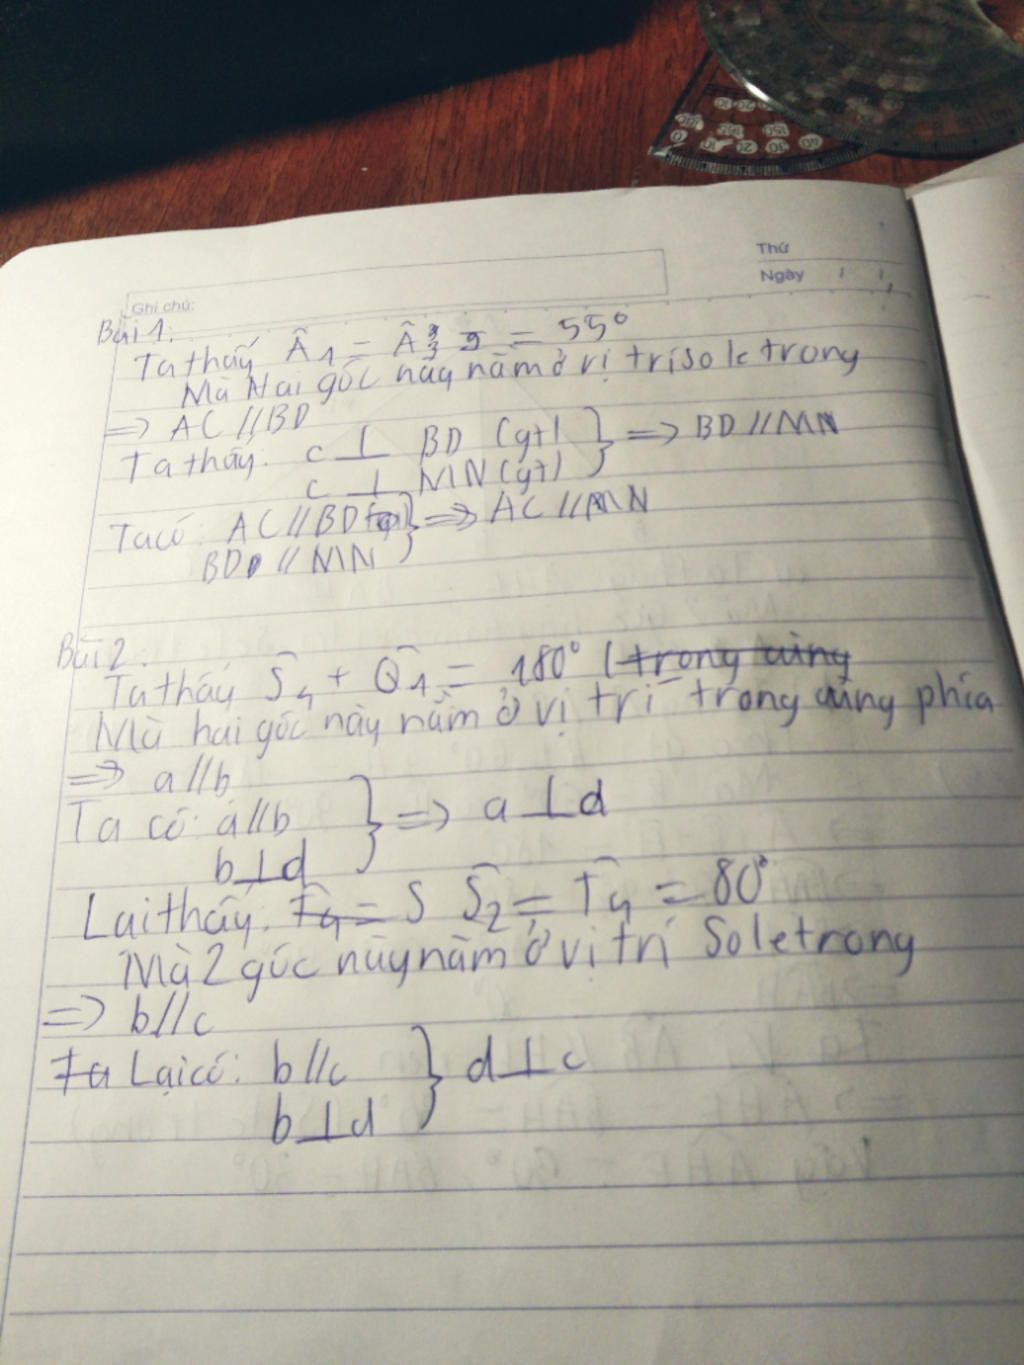 Thứ
Ngày
Ghi chú:
Bài 1:
Ta thấy Â1 = Â3 = 55°
Mà Hai góc này nằm ở vị trí so le trong
=> AC // BD
Ta thấy: c ⊥ BD (gt) } => BD // MN
c ⊥ MN (gt)
Ta có: AC // BD } => AC // MN
BD // MN
Bài 2:
Ta thấy Ŝ4 + Q̂1 = 180° (trong cùng
Mà hai góc này nằm ở vị trí trong cùng phía
=> a // b
Ta có: a // b } => a ⊥ d
b ⊥ d
Lại thấy: T̂4 = S Ŝ2 = T̂4 = 80°
Mà 2 góc này nằm ở vị trí So le trong
=> b // c
Ta Lại có: b // c } d ⊥ c
b ⊥ d